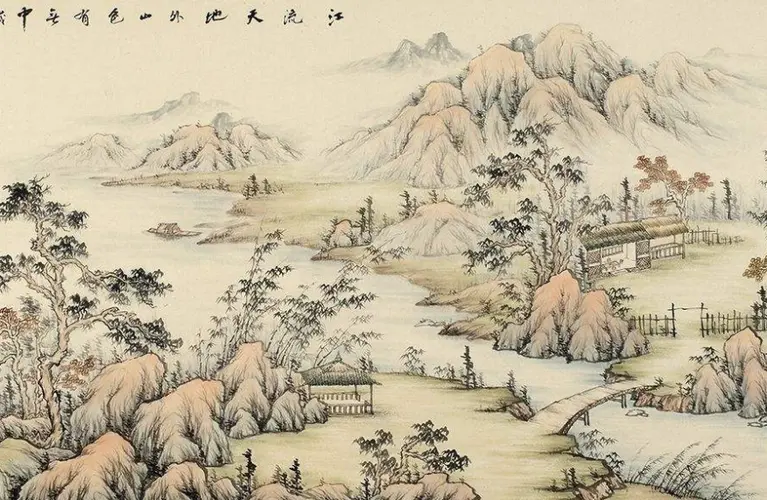 江流天地外山色有無中